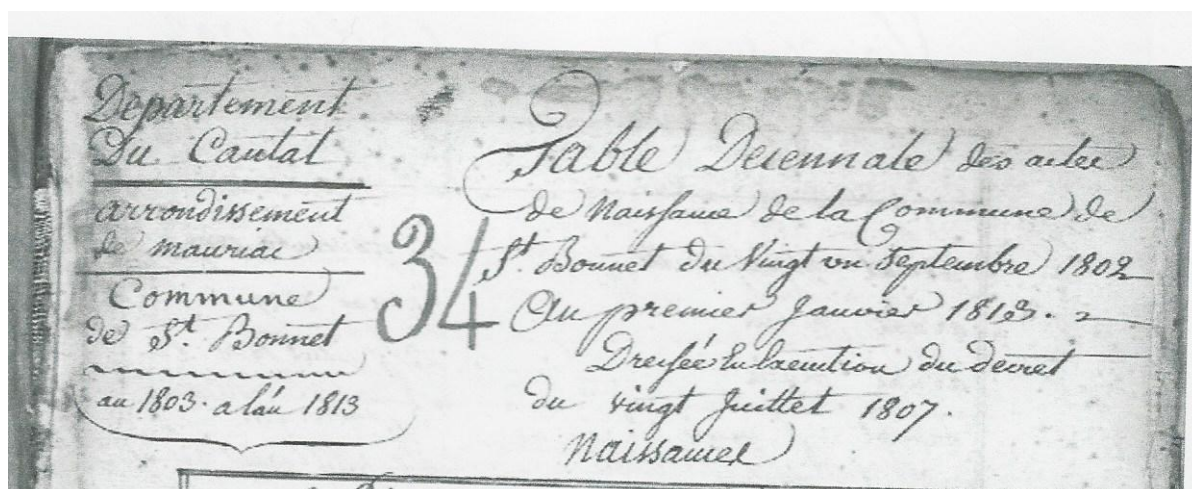 Departement
Du Cantal
arrondissement
de mauriac
Commune
de St. Bonnet
an 1803. a l'an 1813
34
Table Decennale des actes
de Naissance de la Commune de
St. Bonnet du Vingt un Septembre 1802
Au premier Janvier 1813.
Dressée En Execution du decret
du vingt Juillet 1807.
Naissances